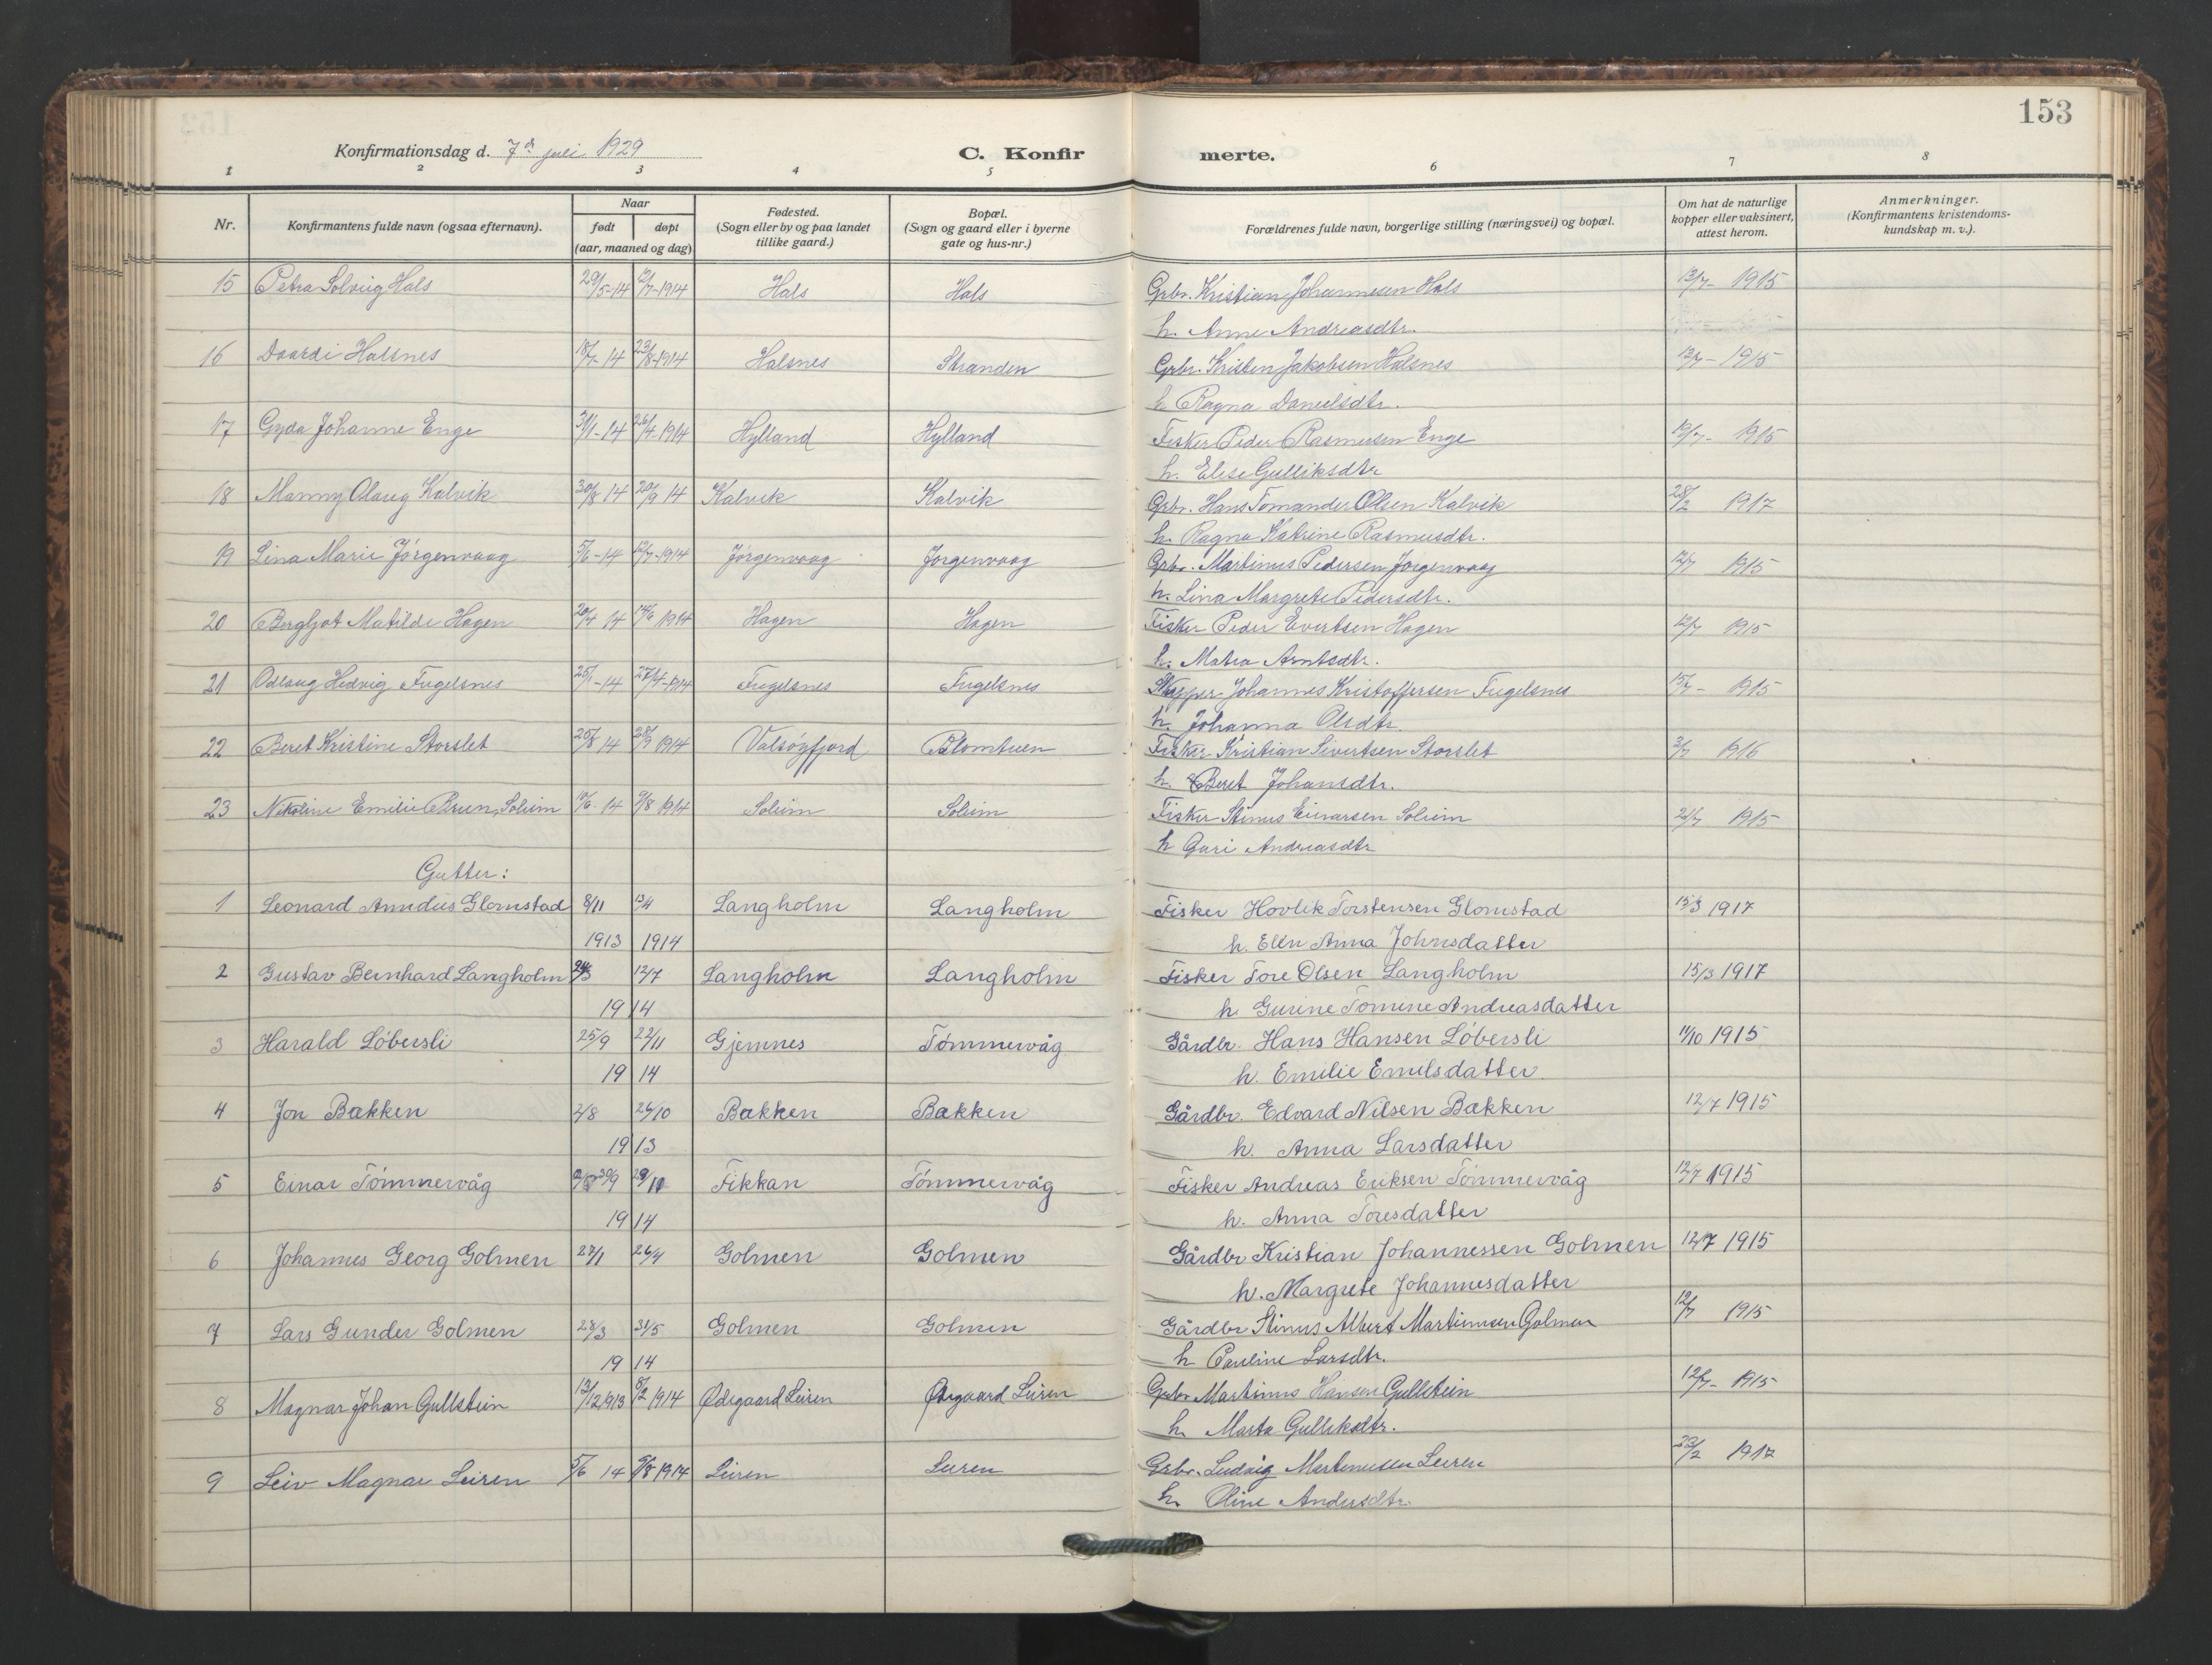 153
Konfirmationsdag d. 7de juli 1929
C. Konfirmerte.
1 2 3 4 5 6 7 8
Nr. | Konfirmantens fulde navn (ogsaa efternavn). | Naar født døpt (aar, maaned og dag) | Fødested. (Sogn eller by og paa landet tillike gaard.) | Bopæl. (Sogn og gaard eller i byerne gate og hus-nr.) | Forældrenes fulde navn, borgerlige stilling (næringsvei) og bopæl. | Om hat de naturlige kopper eller vaksinert, attest herom. | Anmerkninger. (Konfirmantens kristendoms-kundskap m. v.).
15 Petra Solveig Hals 29/5-14 12/7-1914 Hals Hals Grbr. Kristian Johannesen Hals 13/7- 1915
h. Anne Andreasdtr.
16 Daardi Halsnes 18/7- 14 23/8-1914 Halsnes Stranden Grbr. Kristen Jakobsen Halsnes 13/7- 1915
h. Ragna Danielsdtr.
17 Gyda Johanne Enge 31/1-14 26/4-1914 Hylland Hylland Fisker Peder Rasmussen Enge 12/7- 1915
h. Elise Gulliksdtr
18 Manny Olaug Kalvik 30/8 14 20/9 14 Kalvik Kalvik Grbr. Hans Tomander Olsen Kalvik 28/2 1917
h. Ragna Katrine Rasmusdtr.
19 Lina Marie Jørgenvaag 5/6-14 12/7-1914 Jørgenvaag Jørgenvaag Grbr. Martinus Pedersen Jørgenvaag 12/7 1915
h. Lina Margrete Pedersdtr.
20 Bergljot Matilde Hagen 20/4 14 14/6 1914 Hagen Hagen Fisker Peder Evertsen Hagen 12/7 1915
h. Matea Arntsdtr.
21 Odlaug Hedvig Fugelsnes 25/1-14 27/4-1914 Fugelsnes Fugelsnes Skipper Johannes Kristoffersen Fugelsnes 15/7- 1915
h. Johanna Olsdtr.
22 Beret Kristine Storslet 25/8 14 28/9 1914 Valsøyfjord Blomtuen Fisker Kristian Sivertsen Storslet 3/7 1916
h. Beret Johansdtr.
23 Nikoline Emilie Brun Solem 10/6- 14 9/8 1914 Soleim Soleim Fisker Stinus Einarsen Soleim 21/7 1915
h Guri Andreasdtr
Gutter:
1 Leonard Amdus Glomstad 8/11 13/4 Langholm Langholm Fisker Hovlik Torstensen Glomstad 15/3 1917
1913 1914 h. Ellen Anna Johnsdatter
2 Gustav Bernhard Langholm 24/3 12/7 Langholm Langholm Fisker Tore Olsen Langholm 15/3 1917
19 14 h. Gurine Tomine Andreasdatter
3 Harald Løbersli 25/9 22/11 Gjemnes Tømmervåg Gårdbr. Hans Hansen Løbersli 11/10 1915
19 14 h. Emelie Emilsdatter.
4 Jon Bakken 2/8 26/10 Bakken Bakken Gårdbr. Edvard Nilsen Bakken 12/7 1915
19 13 h. Anna Larsdatter
5 Einar Tømmervåg 30/9 29/11 Fikkan Tømmervåg Fisker Andreas Eriksen Tømmervåg 12/7 1915
19 14 h. Anna Toresdatter
6 Johannes Georg Golmen 27/1 26/4 Golmen Golmen Gårdbr Kristian Johannessen Golmen 12/7 1915
h. Margrete Johannesdatter
7 Lars Gunder Golmen 28/3 31/5 Golmen Golmen Gårdbr Stinus Albert Martinusen Golmen 12/7 1915
19 14 h Pauline Larsdtr.
8 Magnar Johan Gullstein 12/12 1913 8/2 1914 Ødegaard Leiren Ødegaard Leiren Grbr Martinus Hansen Gullstein 12/7- 1915
h. Marta Gulliksdtr.
9 Leiv Magnar Leiren 5/6 14 9/8 1914 Leiren Leiren Grbr. Ludvig Martinussen Leiren 28/2 1917
h. Oline Andersdtr.